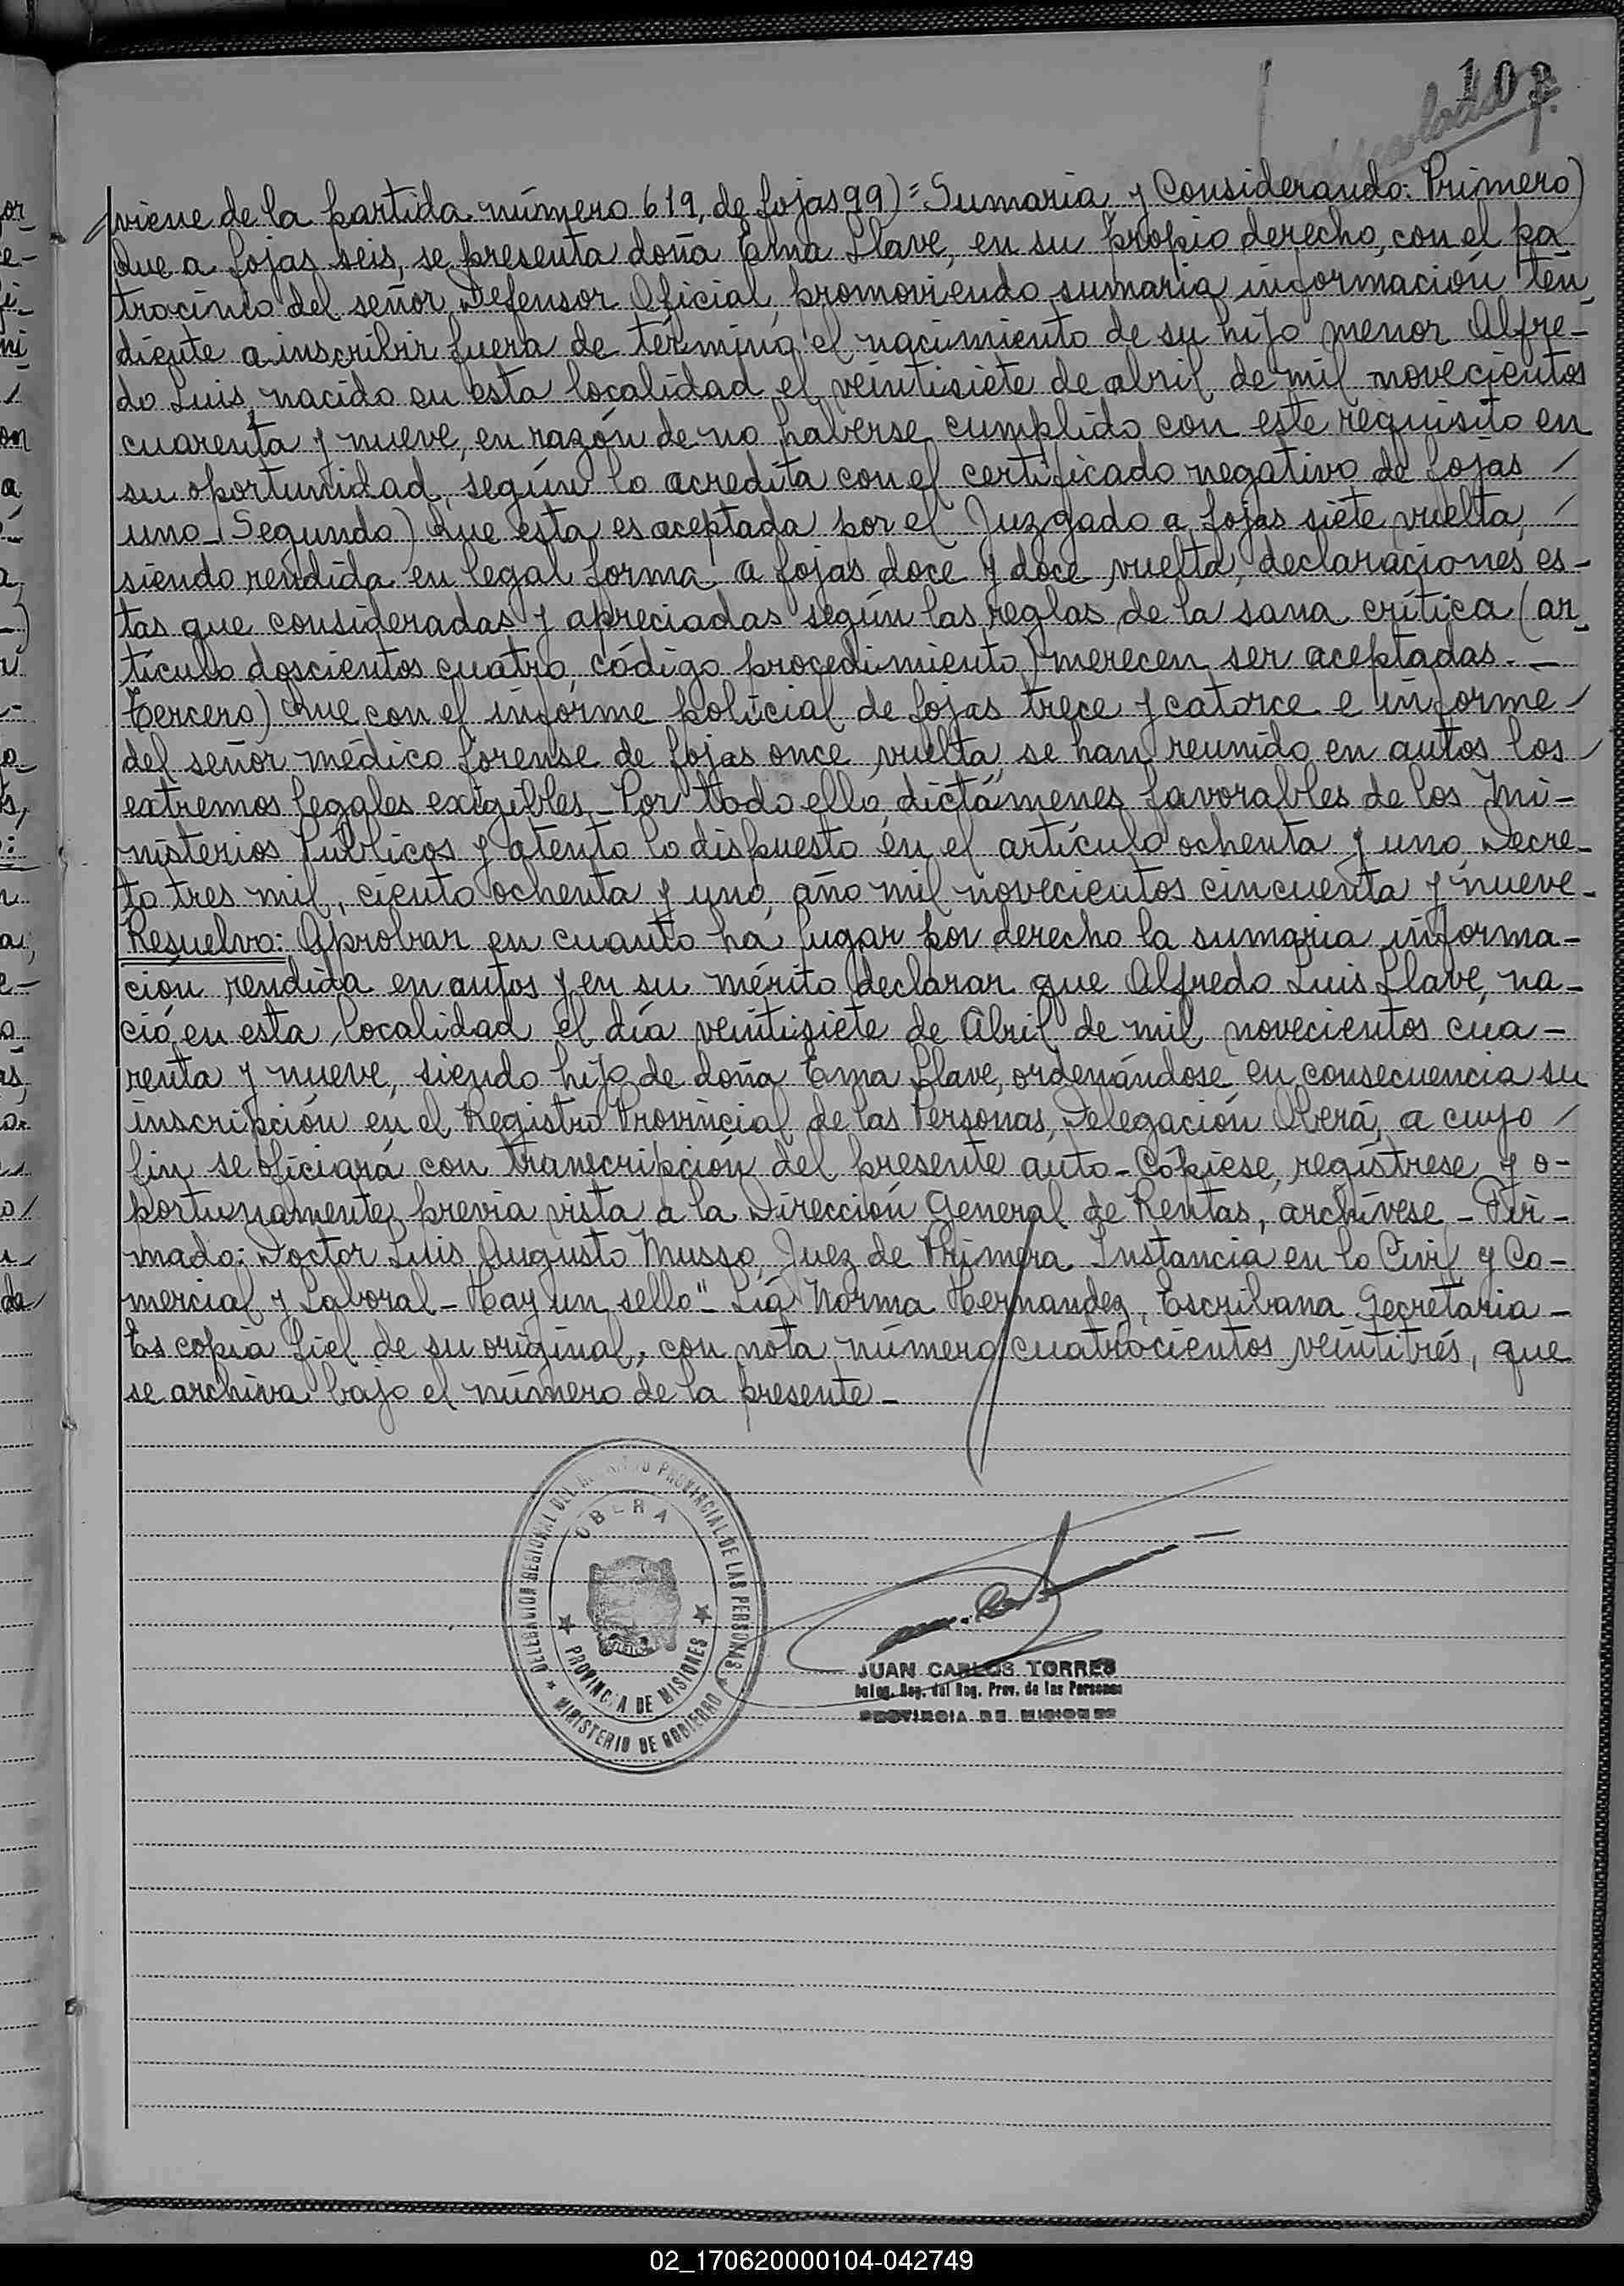 103
(viene de la partida número 619, de fojas 99)= Sumaria y Considerando: Primero)
Que a fojas seis, se presenta doña Ema Llave, en su propio derecho, con el pa
trocinio del señor Defensor Oficial, promoviendo sumaria información ten_
diente a inscribir fuera de término el nacimiento de su hijo menor Alfre-
do Luis, nacido en esta localidad el veintisiete de abril de mil novecientos
cuarenta y nueve, en razón de no haberse cumplido con este requisito en
su oportunidad, según lo acredita con el certificado negativo de fojas /
uno_ Segundo) Que esta es aceptada por el Juzgado a fojas siete vuelta, /
siendo rendida en legal forma a fojas doce y doce vuelta, declaraciones es-
tas que consideradas y apreciadas según las reglas de la sana crítica (ar_
tículo doscientos cuatro, código procedimiento) merecen ser aceptadas._
Tercero) Que con el informe policial de fojas trece y catorce e informe /
del señor médico forense de fojas once vuelta, se han reunido en autos los /
extremos legales exigibles_ Por todo ello, dictámenes favorables de los Mi-
nisterios Públicos y atento lo dispuesto en el artículo ochenta y uno, Decre-
to tres mil, ciento ochenta y uno, año mil novecientos cincuenta y nueve-
Resuelvo: Aprobar en cuanto ha lugar por derecho la sumaria informa-
ción rendida en autos y en su mérito declarar que Alfredo Luis Llave, na-
ció en esta localidad el día veintisiete de Abril de mil novecientos cua-
renta y nueve, siendo hijo de doña Ema Llave, ordenándose en consecuencia su
inscripción en el Registro Provincial de las Personas, Delegación Oberá, a cuyo /
fin se oficiará con transcripción del presente auto-Cópiese, regístrese y o-
portunamente, previa vista a la Dirección General de Rentas, archívese - Fir-
mado: Doctor Luis Augusto Musso, Juez de Primera Instancia en lo Civil y Co-
mercial y Laboral - Hay un sello"- Lía Norma Hernandez, Escribana Secretaria -
Es copia fiel de su original, con nota número cuatrocientos veintitrés, que
se archiva bajo el número de la presente -
DELEGACION REGIONAL DEL REGISTRO PROVINCIAL DE LAS PERSONAS
OBERA
PROVINCIA DE MISIONES
MINISTERIO DE GOBIERNO
JUAN CARLOS TORRES
Deleg. Reg. del Reg. Prov. de las Personas
PROVINCIA DE MISIONES
02_170620000104-042749